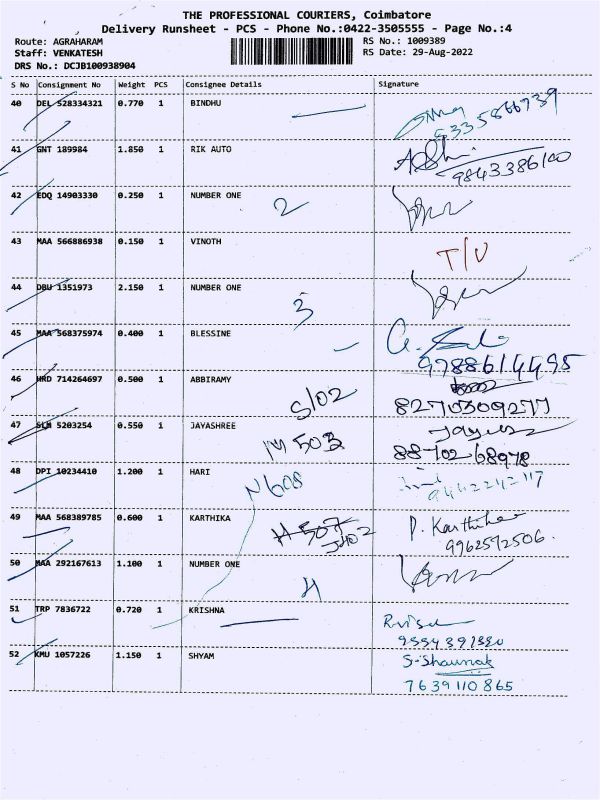 THE PROFESSIONAL COURIERS, Coimbatore
Delivery Runsheet - PCS - Phone No.:0422-3505555 - Page No.:4
Route: AGRAHARAM
Staff: VENKATESH
DRS No.: DCJB100938904
RS No.: 1009389
RS Date: 29-Aug-2022
S No Consignment No Weight PCS Consignee Details Signature
40 DEL 528334321 0.770 1 BINDHU
41 GNT 189984 1.850 1 RIK AUTO
9843386100
42 EDQ 14903330 0.250 1 NUMBER ONE 2
43 MAA 566886938 0.150 1 VINOTH T/U
44 DBU 1351973 2.150 1 NUMBER ONE 3
45 MAA 568375974 0.400 1 BLESSINE
9788614495
46 HRD 714264697 0.500 1 ABBIRAMY S102
8270309277
47 SLM 5203254 0.550 1 JAYASHREE M 503
88702 68978
48 DPI 10234410 1.200 1 HARI N608
9442242117
49 MAA 568389785 0.600 1 KARTHIKA H 507 J402 P. Karthika
9962592506
50 MAA 292167613 1.100 1 NUMBER ONE 4
51 TRP 7836722 0.720 1 KRISHNA
52 KMU 1057226 1.150 1 SHYAM S-Shaunak
7639110865